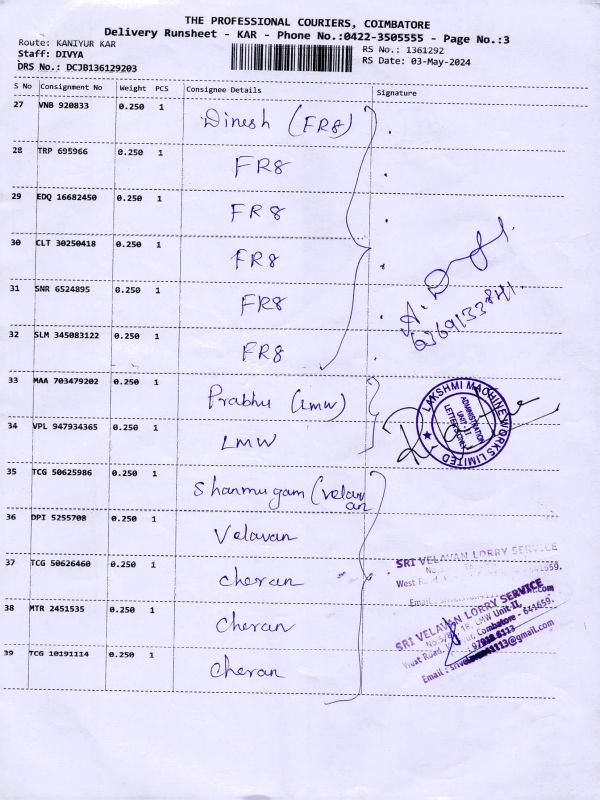 THE PROFESSIONAL COURIERS, COIMBATORE
Delivery Runsheet - KAR - Phone No.:0422-3505555 - Page No.:3
Route: KANIYUR KAR
Staff: DIVYA
DRS No.: DCJB136129203
RS No.: 1361292
RS Date: 03-May-2024
S No Consignment No Weight PCS Consignee Details Signature
27 VNB 920833 0.250 1 Dinesh (FR8)
28 TRP 695966 0.250 1 FR8
29 EDQ 16682450 0.250 1 FR8
30 CLT 30250418 0.250 1 FR8
31 SNR 6524895 0.250 1 FR8
32 SLM 345083122 0.250 1 FR8
33 MAA 703479202 0.250 1 Prabhu (LMW)
34 VPL 947934365 0.250 1 LMW
35 TCG 50625986 0.250 1 Shanmugam (velavan
36 DPI 5255708 0.250 1 Velavan
37 TCG 50626460 0.250 1 cheran
38 MTR 2451535 0.250 1 cheran
39 TCG 10191114 0.250 1 cheran
LAKSHMI MACHINE WORKS LIMITED
ADMINISTRATION
UNIT-II
SRI VELAVAN LORRY SERVICE
SRI VELAVAN LORRY SERVICE
LMW Unit II,
West Road, Coimbatore - 641659.